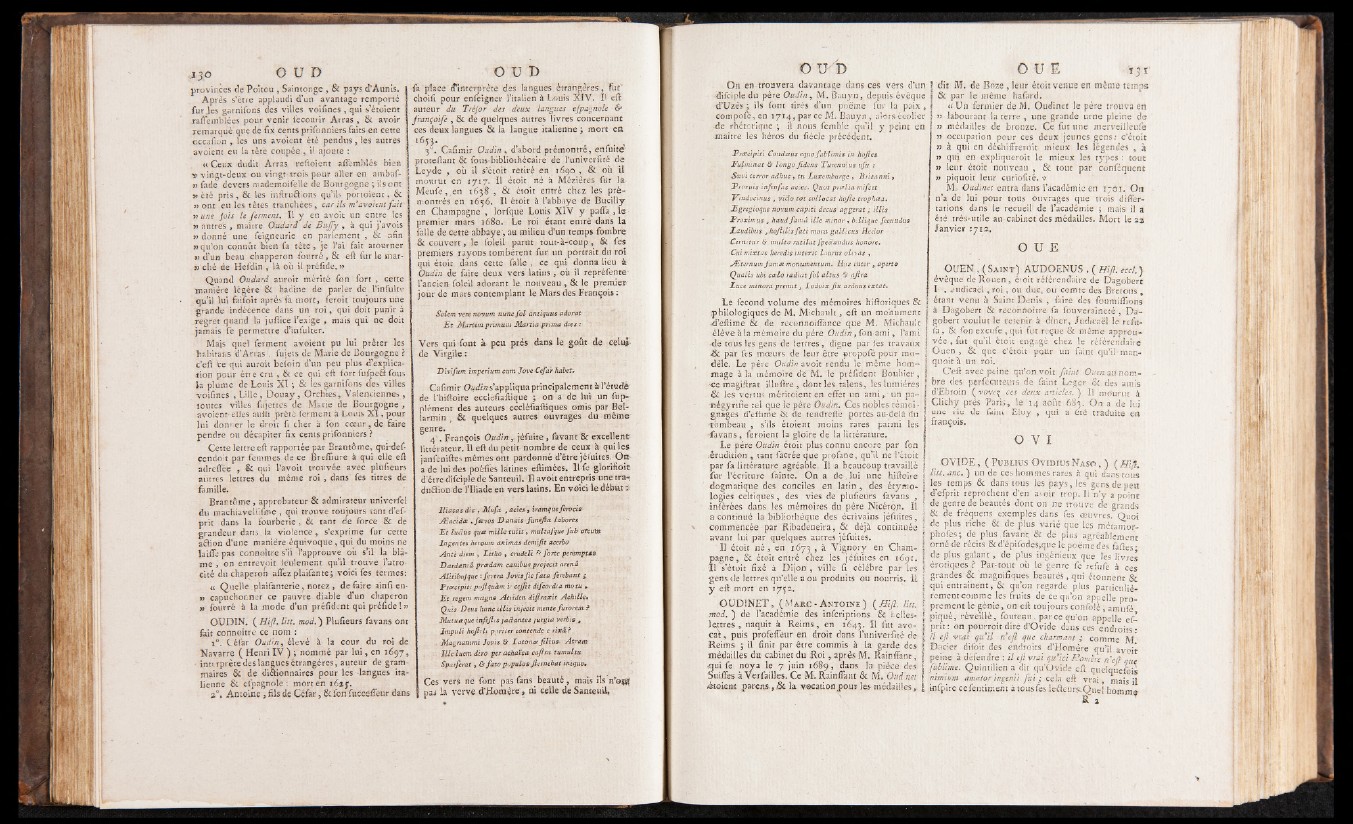 130 OUD
provinces de Poitou, Saintonge, & pays d'Aunis.
Après s'être applaudi d'un avantage remporté
sur les garnisons des villes voisines, qui s'étoient
rassemblées pour venir secourir Arras, & avoir
remarqué que de six cents prisonniers faits en cette
occasion, les uns avoient été pendus, les autres
avoient eu la tête coupée, il ajoute :
« Ceux dudit Arras restoient assemblés bien
» vingt-deux ou vingt-trois pour aller en ambas-
» sade devers mademoiselle de Bourgogne ; ils ont
» été pris, & les instructions qu'ils portoient, &
» ont eu les têtes tranchées, car ils m'avoient fait
» une fois le serment. Il y en avoit un entre les
» autres, maître Oudard de Bussy, à qui j'avois
» donné une seigneurie en parlement, & afin
» qu'on connût bien sa tête, je l'ai fait atourner
» d'un beau chapperon fourré, & est sur le mar-
» ché de Hesdin, là où il préside. »
Quand Oudard auroit mérité son sort, cette
manière légère & badine de parler de l'insulte
qu'il lui faisoit après sa mort, seroit toujours une
grande indécence dans un roi, qui doit punir à
regret quand la justice l'exige, mais qui ne doit
jamais se permettre d'insulter.
Mais quel serment avoient pu lui prêter les
habitans d'Arras, sujets de Marie de Bourgogne ?
c'est ce qui auroit besoin d'un peu plus d'explica-
tion pour être cru, & ce qui est fort suspect sous
la plume de Louis XI ; & les garnisons des villes
voisines, Lille, Douay, Orchies, Valenciennes,
toutes villes sujettes de Marie de Bourgogne,
avoient-elles aussi prêté serment à Louis XI, pour
lui donner le droit si cher à son cœur, de faire
pendre ou décapiter six cents prisonniers ?
Cette lettre est rapportée par Brantôme, qui des-
cendoit par femmes de ce Bressuire à qui elle est
adressée, & qui l'avoit trouvée avec plusieurs
autres lettres du même roi, dans les titres de
famille.
Brantôme, approbateur & admirateur universel
du machiavélisme, qui trouve toujours tant d'es-
prit dans la fourberie, & tant de force & de
grandeur dans la violence, s'exprime sur cette
action d'une manière équivoque, qui du moins ne
laisse pas connoître s'il l'approuve ou s'il la blâ-
me, on entrevoit seulement qu'il trouve l'atro-
cité du chaperon assez plaisante ; voici ses termes :
« Quelle plaisanterie, notez, de faire ainsi en-
» capuchonner ce pauvre diable d'un chaperon
» fourré à la mode d'un président qui préside ! »
OUDIN. ( Hist. litt. mod. ) Plusieurs savans ont
fait connoître ce nom :
1°. César Oudin, élevé à la cour du roi de
Navarre ( Henri IV ) ; nommé par lui, en 1597,
interprète des langues étrangères, auteur de gram-
maires & de dictionnaires pour les langues ita-
lienne & espagnole : mort en 1625.
2°. Antoine, fils de César, & son successeur dans
OUD
sa place d'interprète des langues étrangères, fut
choisi pour enseigner l'italien à Louis XIV. Il est
auteur du Trésor des deux langues espagnole &
françoise, & de quelques autres livres concernant
ces deux langues & la langue italienne ; mort en
1653.
3°. Casimir Oudin, d'abord prémontré, ensuite
protestant & sous-bibliothécaire de l'université de
Leyde, où il s'étoit retiré en 1690, & où il
mourut en 1717. Il étoit né à Mézières sur la
Meuse, en 1638, & étoit entré chez les pré-
montrés en 1656. Il étoit à l'abbaye de Bucilly
en Champagne, lorsque Louis XIV y passa, le
premier mars 1680. Le roi étant entré dans la
salle de cette abbaye, au milieu d'un temps sombre
& couvert, le soleil parut tout-à-coup, & ses
premiers rayons tombèrent sur un portrait du roi
qui étoit dans cette salle, ce qui donna lieu à
Oudin de faire deux vers latins, où il représente
l'ancien soleil adorant le nouveau, & le premier
jour de mars contemplant le Mars des François :
Solem vere novum nunc sol antiquus adorat
Et Martem primum Martia prima dies :
Vers qui sont à peu près dans le goût de celui
de Virgile :
Divisum imperium cum Jove Cesar habet.
Casimir Oudin s'appliqua principalement à l'étude
de l'histoire ecclésiastique ; on a de lui un sup-
plément des auteurs ecclésiastiques omis par Bel-
larmin, & quelques autres ouvrages du même
genre.
4°. François Oudin, jésuite, savant & excellent
littérateur. Il est du petit nombre de ceux à qui les
jansénistes mêmes ont pardonné d'être jésuites. On
a de lui des poésies latines estimées. Il se glorifioit
d'être disciple de Santeuil. Il avoit entrepris une tra-
duction de l'Iliade en vers latins. En voici le début :
Iliacas dic, Musa, acies, iramque ferocis
Æacidæ, sævos Danais funesta labores
Et luctus quæ mille tulit, multasque sub orcum
Ingentes heroum animas demisit acerbo
Ante diem, Letho, crudeli & sorte peremptas
Dardeniâ prædam canibus projecit arenâ
Alitibusque : severa Jovis sic fata ferebant ;
Præcipiti postquàm excessit discordia motu,
Et regem magna Atriden distraxit Achille.
Quis Deus hunc illis injecit mente furorem ?
Mutuaque infestis jactantes jurgia verbis,
Impulit hostili pariter contende & irâ ?
Magnanimi Jovis & Latonæ filius. Atram
Ille luem diro per achaïca castra tumultu
Sparserat, & fato populus sternebat iniquo.
Ces vers ne sont pas sans beauté, mais ils n'ont
pas la verve d'Homère, ni celle de Santeuil.
OUD
On en trouvera davantage dans ces vers d'un
disciple du père Oudin, M. Bauyn, depuis évêque
d'Uzès ; ils sont tirés d'un poëme sur la paix,
composé, en 1714, par ce M. Bauyn, alors écolier
de rhétorique ; il nous semble qu'il y peint en
maître les héros du siècle précédent.
Præcipiti Condæus equo sublimis in hostes
Fulminat & longo fidens Turennius usu :
Sævi terror adhuc, tu Luxemburge, Britanni,
Protrais infensas acies. Quot prælia miscet
Vindocinus, victo tot collocat hoste trophæa.
Egregiosque novum capiti decus aggerat, illis
Proximus, haud famâ ille minor, bellique secundos
Laudibus, hostilis fati mons gallicus Hector
Cernitur & multo rutilat spectandus honore.
Cui mixtus heredis inserit laurus olivæ,
Æternum famæ monumentum. Hæc inter, aperto
Qualis ubi cœlo radiat sol altus & astra
Luce minora premit, Lodoix sic arduus extat.
Le second volume des mémoires historiques &
philologiques de M. Michault, est un monument
d'estime & de reconnoissance que M. Michault
élève à la mémoire du père Oudin, son ami, l'ami
de tous les gens de lettres, digne par ses travaux
& par ses mœurs de leur être proposé pour mo-
dèle. Le père Oudin avoit rendu le même hom-
mage à la mémoire de M. le président Bouhier,
ce magistrat illustre, dont les talens, les lumières
& les vertus méritoient en effet un ami, un pa-
négyriste tel que le père Oudin. Ces nobles témoi-
gnages d'estime & de tendresse portés au-delà du
tombeau, s'ils étoient moins rares parmi les
savans, feroient la gloire de la littérature.
Le père Oudin étoit plus connu encore par son
érudition, tant sacrée que profane, qu'il ne l'étoit
par sa littérature agréable. Il a beaucoup travaillé
sur l'écriture sainte. On a de lui une histoire
dogmatique des conciles en latin, des étymo-
logies celtiques, des vies de plusieurs savans,
insérées dans les mémoires du père Nicéron. Il
a continué la bibliothèque des écrivains jésuites,
commencée par Ribadeneira, & déjà continuée
avant lui par quelques autres jésuites.
Il étoit né, en 1673, à Vignory en Cham-
pagne, & étoit entré chez les jésuites en 1691.
Il s'étoit fixé à Dijon, ville si célèbre par les
gens de lettres qu'elle a ou produits ou nourris. Il
y est mort en 1752.
OUDINET, ( MARC-ANTOINE ) ( Hist. litt.
mod. ) de l'académie des inscriptions & belles-
lettres, naquit à Reims, en 1643. Il fut avo-
cat, puis professeur en droit dans l'université de
Reims ; il finit par être commis à la garde des
médailles du cabinet du Roi, après M. Rainssant,
qui se noya le 7 juin 1689, dans la pièce des
Suisses à Versailles. Ce M. Rainssant & M. Oudinet
étoient parens, & la vocation pour les médailles,
OUE 131
dit M. de Boze, leur étoit venue en même temps
& par le même hasard.
« Un fermier de M. Oudinet le père trouva en
» labourant la terre, une grande urne pleine de
» médailles de bronze. Ce fut une merveilleuse
» occupation pour ces deux jeunes gens : c'étoit
» à qui en déchiffreroit mieux les légendes, à
» qui en expliqueroit le mieux les types : tout
» leur étoit nouveau, & tout par conséquent
» piquoit leur curiosité. »
M. Oudinet entra dans l'académie en 1701. On
n'a de lui pour tous ouvrages que trois disser-
tations dans le recueil de l'académie ; mais il a
été très-utile au cabinet des médailles. Mort le 22
Janvier 1712.
OUE
OUEN, ( SAINT ) AUDOENUS, ( Hist. eccl. )
évêque de Rouen, étoit référendaire de Dagobert
Ier. Judicaël, roi, ou duc, ou comte des Bretons,
étant venu à Saint-Denis, faire des soumissions
à Dagobert & reconnoître sa souveraineté, Da-
gobert voulut le retenir à dîner, Judicaël le refu-
sa, & son excuse, qui fut reçue & même approu-
vée, fut qu'il étoit engagé chez le référendaire
Ouen, & que c'étoit pour un saint qu'il man-
quoit à un roi.
C'est avec peine qu'on voit saint Ouen au nom-
bre des persécuteurs de saint Leger & des amis
d'Ebroin ( voyez ces deux articles. ) Il mourut à
Clichy près Paris, le 24 août 683. On a de lui
une vie de saint Eloy, qui a été traduite en
françois.
OVI
OVIDE, ( PUBLIUS OVIDIUS NASO, ) ( Hist.
litt. anc. ) un de ces hommes rares à qui dans tous
les temps & dans tous les pays, les gens de peu
d'esprit reprochent d'en avoir trop. Il n'y a point
de genre de beautés dont on ne trouve de grands
& de fréquens exemples dans ses œuvres. Quoi
de plus riche & de plus varié que les métamor-
phoses ; de plus savant & de plus agréablement
orné de récits & d'épisodes, que le poëme des fastes ;
de plus galant, de plus ingénieux que les livres
érotiques ? Par-tout où le genre se refuse à ces
grandes & magnifiques beautés, qui étonnent &
qui entraînent, & qu'on regarde plus particuliè-
rement comme les fruits de ce qu'on appelle pro-
prement le génie, on est toujours consolé, amusé,
piqué, réveillé, soutenu par ce qu'on appelle es-
prit : on pourroit dire d'Ovide dans ces endroits :
il est vrai qu'il n'est que charmant ; comme M.
Dacier disoit des endroits d'Homère qu'il avoit
peine à défendre : il est vrai qu'ici Homère n'est que
sublime. Quintilien a dit qu'Ovide est quelquefois
nimium amator ingenii sui ; cela est vrai, mais il
inspire ce sentiment à tous ses lecteurs. Quel homme
R 2